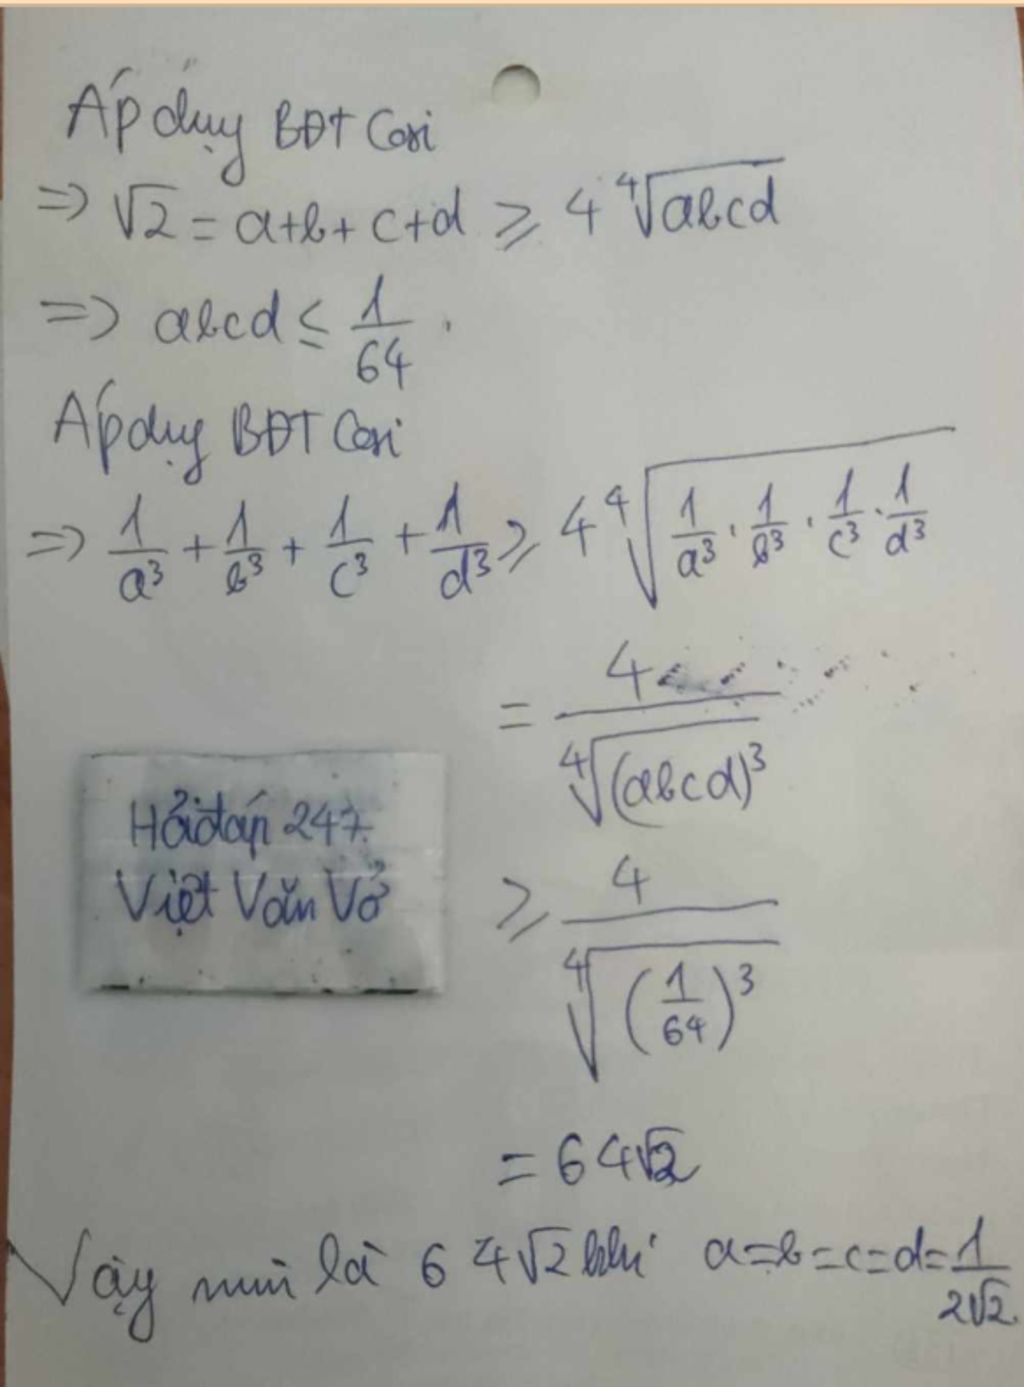 Áp dụng BĐT Cosi
=> √2 = a+b+c+d ≥ 4 ⁴√abcd
=> abcd ≤ 1/64.
Áp dụng BĐT Cosi
=> 1/a³ + 1/b³ + 1/c³ + 1/d³ ≥ 4 ⁴√(1/a³ · 1/b³ · 1/c³ · 1/d³)
= 4/⁴√(abcd)³
≥ 4/⁴√(1/64)³
= 64√2
Hỏi đáp 247
Việt Văn Vở
Vậy min là 64√2 khi a=b=c=d=1/2√2.